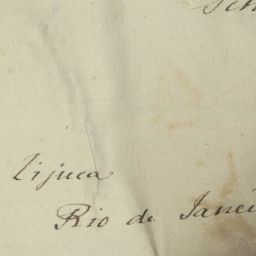 Sen
Tijuca
Rio de Janei